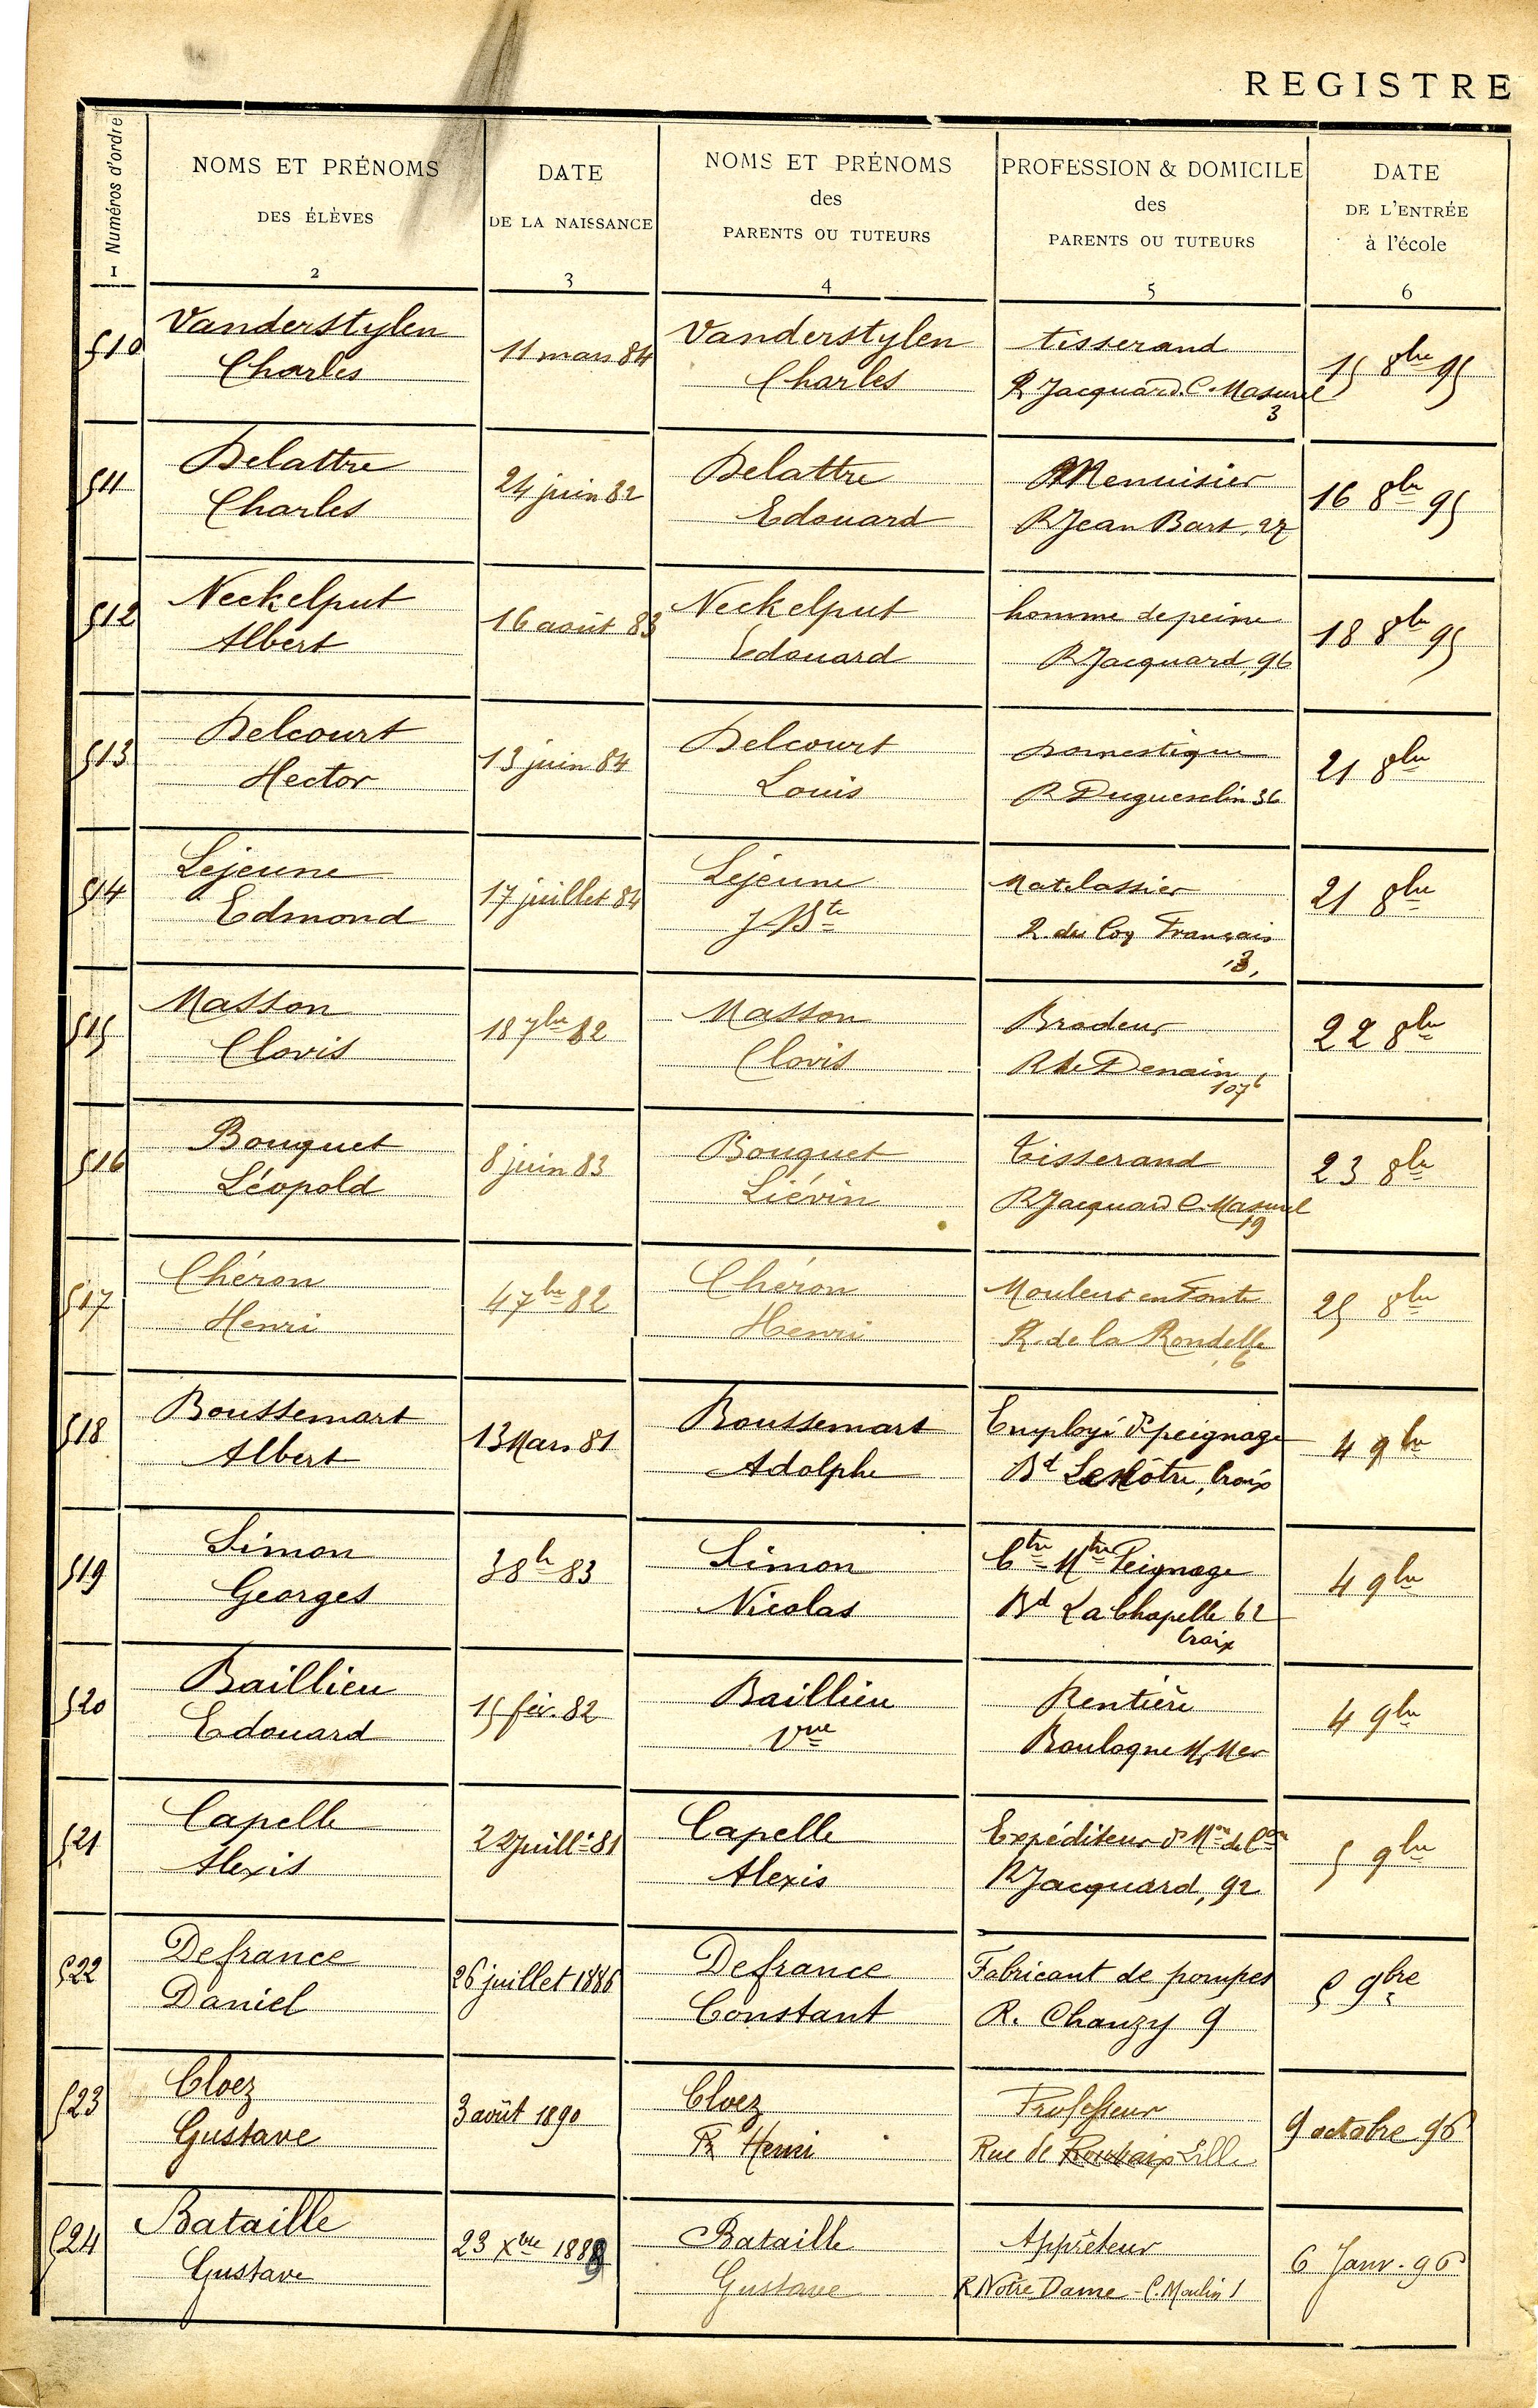 REGISTRE
Numéros d'ordre
NOMS ET PRÉNOMS
DES ÉLÈVES
DATE
DE LA NAISSANCE
NOMS ET PRÉNOMS
des
PARENTS OU TUTEURS
PROFESSION & DOMICILE
des
PARENTS OU TUTEURS
DATE
DE L'ENTRÉE
à l'école
1 2 3 4 5 6
510 Vanderstylen 11 mars 84 Vanderstylen tisserand 15 8bre 95
Charles Charles R Jacquard. C. Masurel
3
511 Delattre 24 juin 82 Delattre Menuisier 16 8bre 95
Charles Edouard R Jean Bart, 27
512 Neckelput 16 août 83 Neckelput homme de peine 18 8bre 95
Albert Edouard R Jacquard, 96
513 Delcourt 13 juin 84 Delcourt Domestique 21 8bre
Hector Louis R Duguesclin 36
514 Lejeune 17 juillet 84 Lejeune Matelassier 21 8bre
Edmond J Bte R. du Coq Français
13,
515 Masson 18 7bre 82 Masson Brodeur 22 8bre
Clovis Clovis R de Denain
107
516 Bouquet 8 juin 83 Bouquet Tisserand 23 8bre
Léopold Liévin R Jacquard C. Masurel
19
517 Chéron 4 7bre 82 Chéron Mouleur en Fonte 25 8bre
Henri Henri R. de la Rondelle
6
518 Boussemart 13 Mars 81 Boussemart Employé de peignage 4 9bre
Albert Adolphe Bd Lenôtre, Croix
519 Simon 3 8bre 83 Simon Ctre Mtre Peignage 4 9bre
Georges Nicolas Bd La Chapelle 62
Croix
520 Baillieu 15 fév. 82 Baillieu Rentière 4 9bre
Edouard Vve Boulogne s/ Mer
521 Capelle 22 Juillt 81 Capelle Expéditeur de Mon de Con 5 9bre
Alexis Alexis R Jacquard, 92
522 Defrance 26 juillet 1886 Defrance Fabricant de pompes 5 9bre
Daniel Constant R. Chanzy 9
523 Cloez 3 août 1890 Cloez Professeur 9 octobre 96
Gustave Henri Rue de Roubaix Lille
524 Bataille 23 Xbre 1889 Bataille Apprêteur 6 Janv. 96
Gustave Gustave R Notre Dame - C. Moulin 1